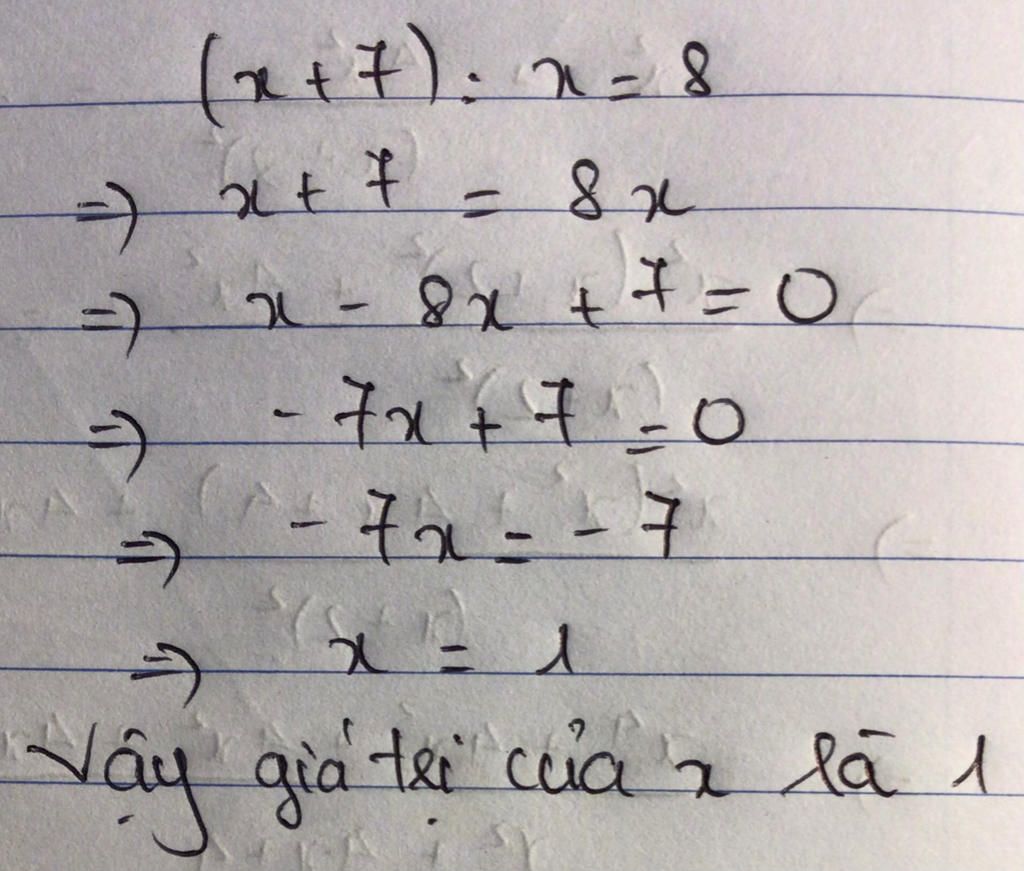 (x + 7) : x = 8
=> x + 7 = 8x
=> x - 8x + 7 = 0
=> - 7x + 7 = 0
=> - 7x = - 7
=> x = 1
Vậy giá trị của x là 1